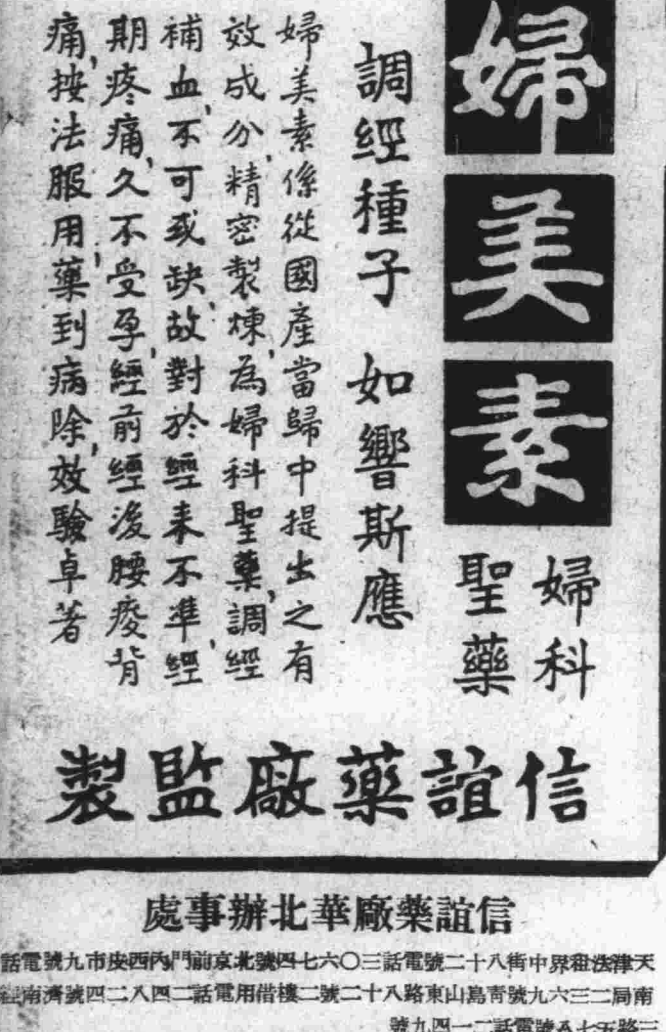 婦美素
婦科
聖藥
調經種子 如響斯應
婦美素係從國產當歸中提出之有
效成分，精密製煉，為婦科聖藥，調經
補血，不可或缺，故對於經來不準，經
期疼痛，久不受孕，經前經後腰痠背
痛，按法服用，藥到病除，效驗卓著
信誼藥廠監製
信誼藥廠華北辦事處
天津法租界中街八十二號電話三〇六七四號北京前門內西皮市九號電話
南局二三六九號青島山東路八十二號二樓借用電話二四八二四號濟南經
三路五七五號電話二一四九號